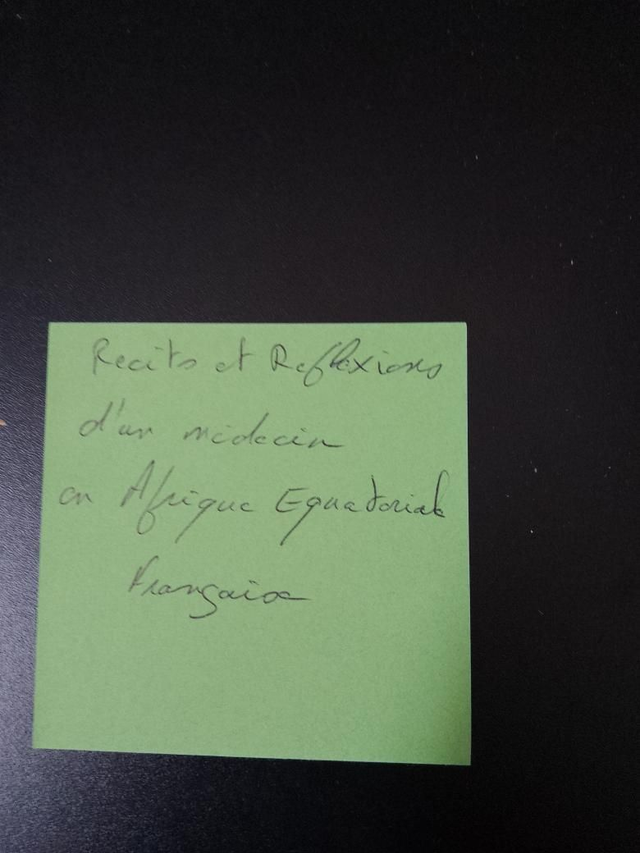 Recits et Reflexions
d'un médecin
en Afrique Equatoriale
Française